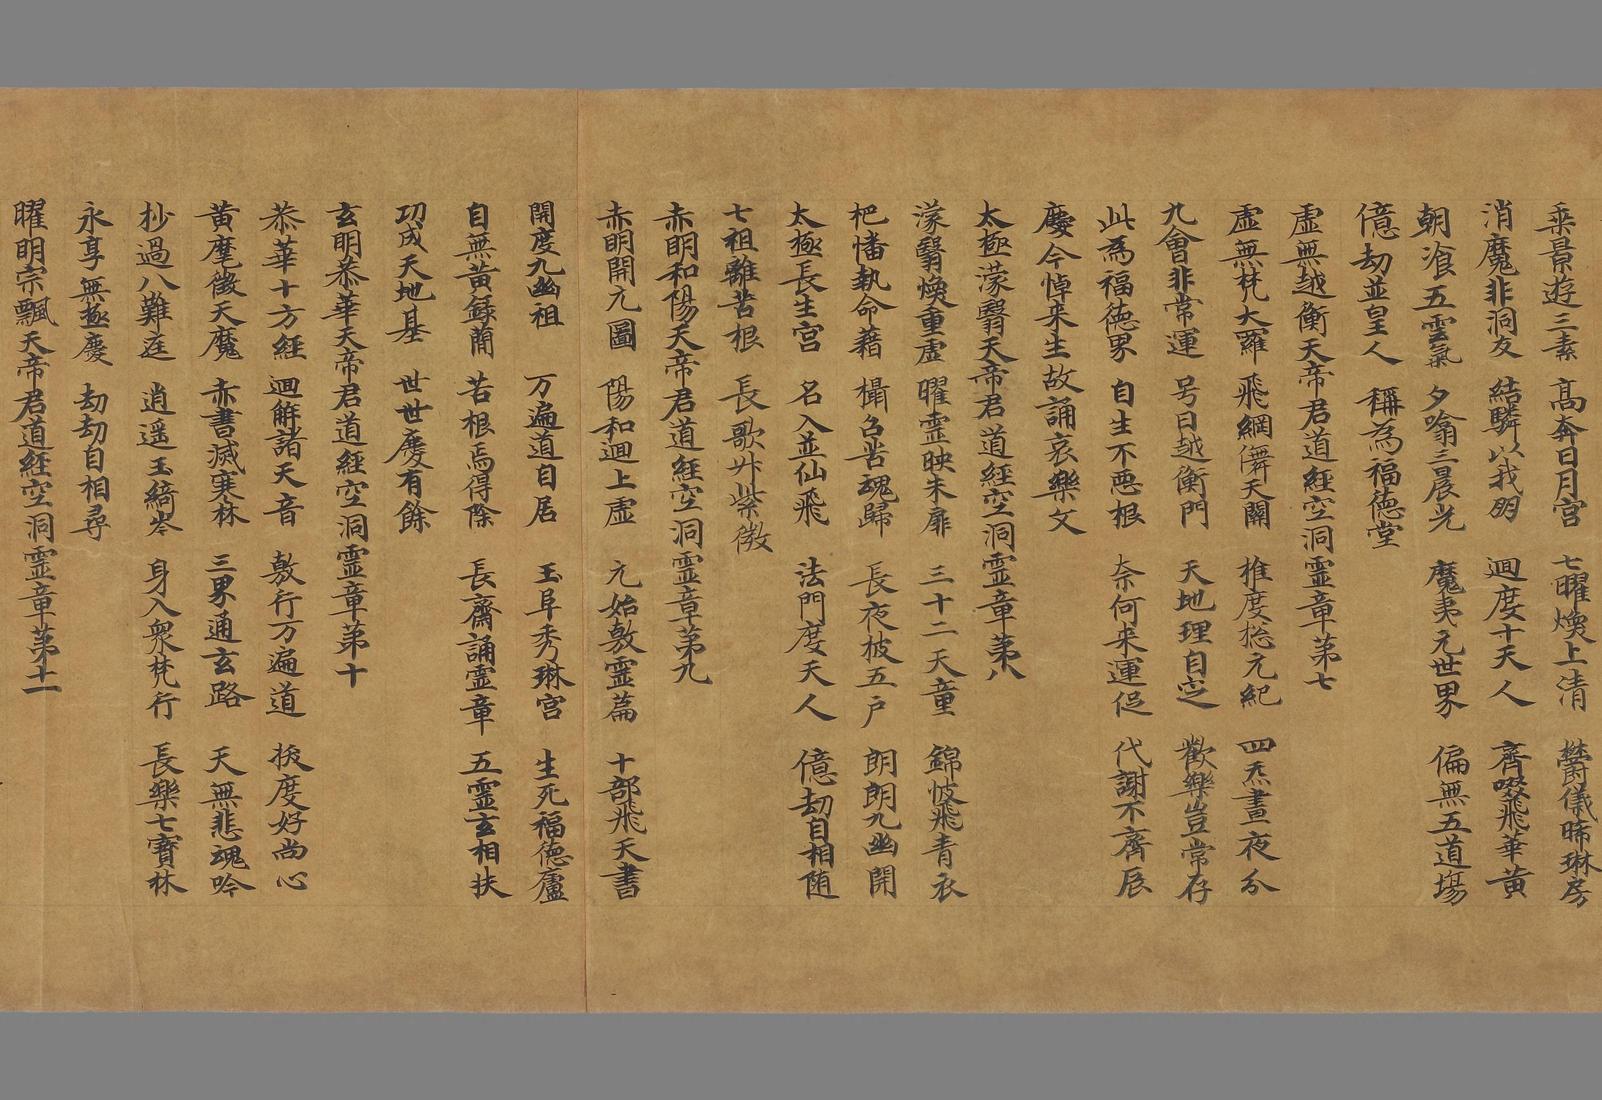 乘景遊三素 高奔日月宮 七曜煥上清 欝儀晞琳房
消魔非洞友 結驎以我朋 迴度十天人 齊啜飛華黄
朝飡五雲氣 夕噏三晨光 魔夷元世界 偏無五道場
億劫並皇人 稱為福德堂
虛無越衡天帝君道經空洞靈章第七
虛無梵大羅 飛綱儛天關 推度捴元紀 四炁晝夜分
九會非常運 号曰越衡門 天地理自空 歡樂豈常存
此為福德界 自生不恶根 奈何来運促 代謝不齊辰
慶今悼来生故誦哀樂文
太極濛翳天帝君道經空洞靈章第八
濛翳煥重虛 曜靈映朱扉 三十二天童 錦帔飛青衣
把幡執命藉 櫑召苦魂歸 長夜披五户 朗朗九幽開
太極長生宮 名入並仙飛 法門度天人 億劫自相随
七祖離苦根 長歌廾紫微
赤明和陽天帝君道經空洞靈章第九
赤明開元圖 陽和迴上虛 元始敷靈篇 十部飛天書
開度九幽祖 万遍道自居 玉阜秀琳宮 生死福德廬
自無黄録蕳 苦根焉得除 長齋誦靈章 五靈玄相扶
功成天地基 世世慶有餘
玄明恭華天帝君道經空洞靈章第十
恭華十方經 迴解諸天音 敷行万遍道 拔度好尚心
黄麾徵天魔 赤書滅寒林 三界通玄路 天無悲魂吟
抄過八難逕 逍遥玉綺岑 身入衆梵行 長樂七寶林
永享無極慶 劫劫自相尋
曜明宗飄天帝君道經空洞靈章第十一